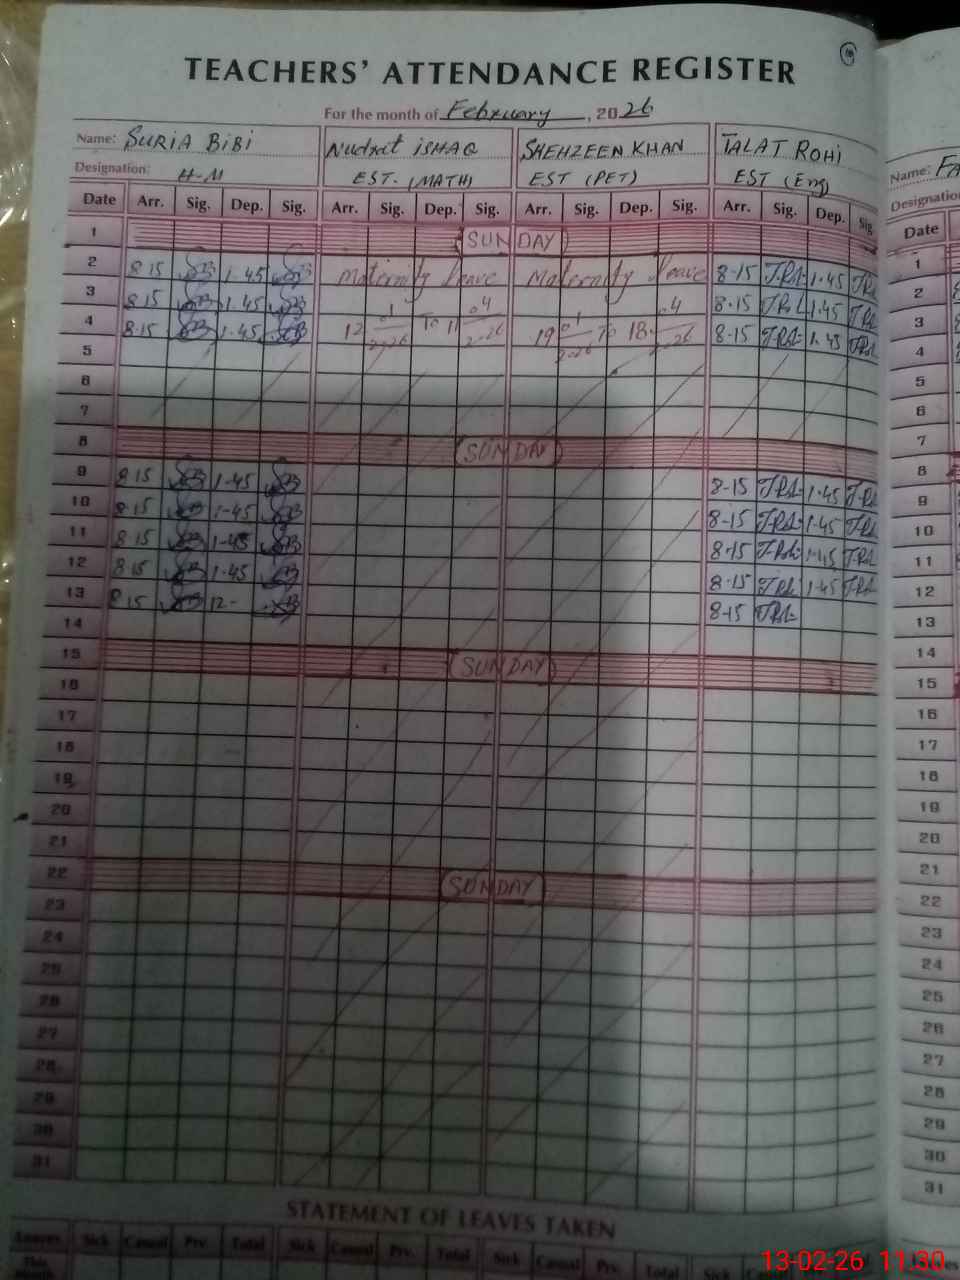 TEACHERS' ATTENDANCE REGISTER
For the month of February, 2026
Name: SURIA BIBI Nudrat ISHAQ SHEHZEEN KHAN TALAT ROHI
Designation: H-M EST. (MATH) EST (PET) EST (Eng)
Date Arr. Sig. Dep. Sig. Arr. Sig. Dep. Sig. Arr. Sig. Dep. Sig. Arr. Sig. Dep. Sig.
1 SUNDAY
2 8-15 SB 1-45 SB Maternity leave Maternity leave 8-15 1-45
3 8-15 SB 1-45 SB 8-15 1-45
4 8-15 SB 1-45 SB 12 01 2026 To 11 04 2026 19 01 2026 To 18 04 2026 8-15 1-45
5
6
7
8 SUNDAY
9 8-15 SB 1-45 SB 8-15 1-45
10 8-15 SB 1-45 SB 8-15 1-45
11 8-15 SB 1-45 SB 8-15 1-45
12 8-15 SB 1-45 SB 8-15 1-45
13 8-15 SB 12- SB 8-15
14
15 SUNDAY
16
17
18
19
20
21
22 SUNDAY
23
24
25
26
27
28
29
30
31
STATEMENT OF LEAVES TAKEN
Leaves Sick Casual Prv. Total Sick Casual Prv. Total Sick Casual Prv. Total Sick
This
Name: FA
Designation
Date
1
2
3
4
5
6
7
8
9
10
11
12
13
14
15
16
17
18
19
20
21
22
23
24
25
26
27
28
29
30
31
13-02-26 11:30